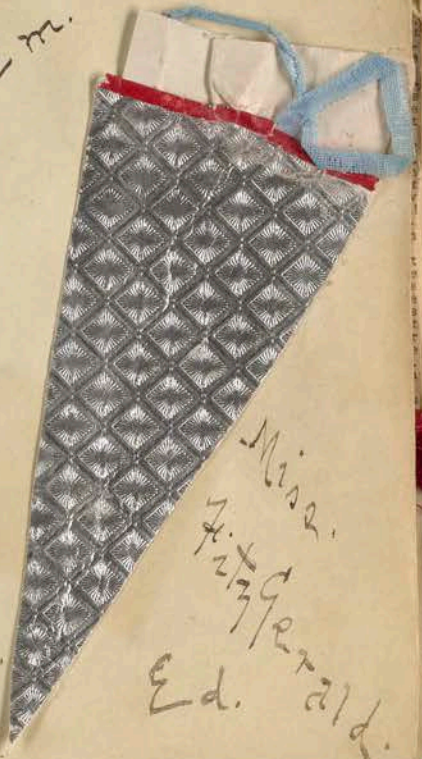 m.
Miss.
FitzGerald.
Ed.